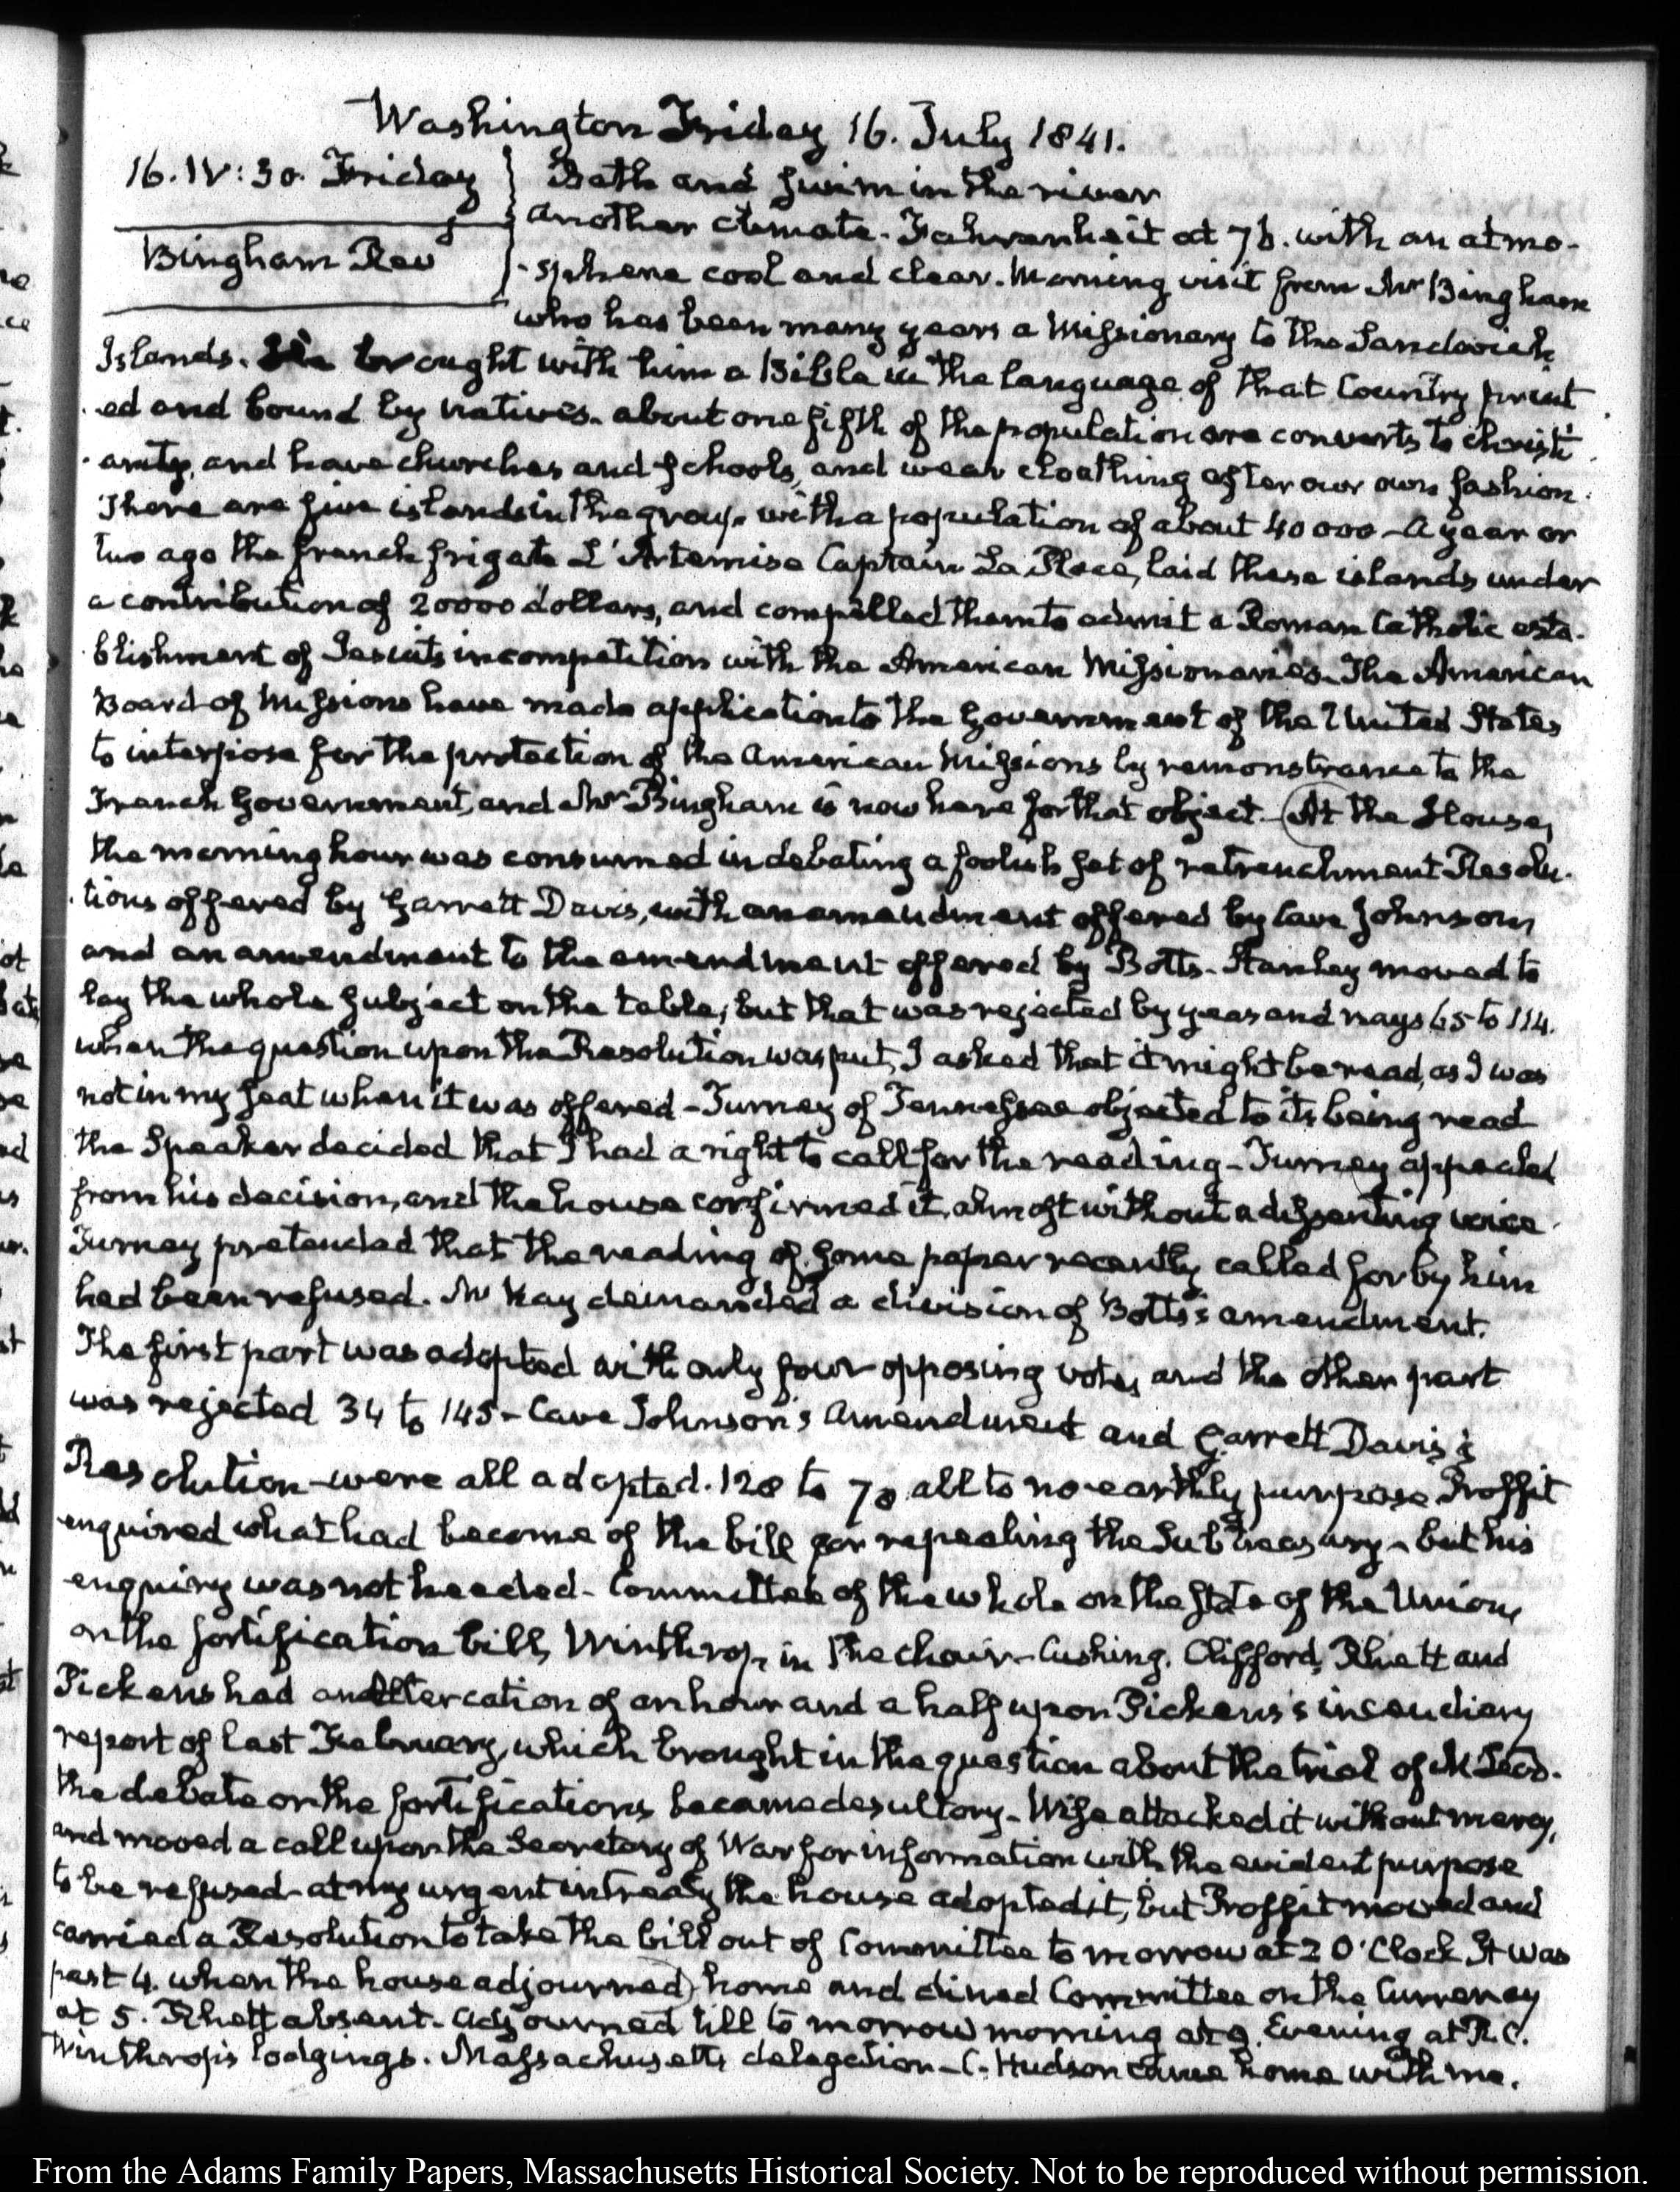 Washington Friday 16. July 1841.
16. IV:30. Friday
Bingham Rev
Bath and swim in the river
another climate. Fahrenheit at 76. with an atmo-
-sphere cool and clear. Morning visit from Mr Bingham
who has been many years a Missionary to the Sandwich
Islands. He brought with him a Bible in the language of that Country print
-ed and bound by natives. about one fifth of the population are converts to christi
-anity, and have churches and schools, and wear cloathing after our own fashion.
There are five islands in the group with a population of about 40000 - A year or
two ago the french frigate L'Artemise Captain La Place, laid these islands under
a contribution of 20000 dollars, and compelled them to admit a Roman Catholic esta-
blishment of Jesuits in competition with the American Missionaries. The American
Board of Missions have made application to the Government of the United States
to interpose for the protection of the American Missions by remonstrance to the
French Government, and Mr Bingham is now here for that object. - At the House,
the morning hour was consumed in debating a foolish set of retrenchment Resolu-
-tions offered by Garrett Davis, with an amendment offered by Cave Johnson
and an amendment to the amendment offered by Botts. Stanley moved to
lay the whole subject on the table; but that was rejected by yeas and nays 65 to 114.
when the question upon the Resolution was put, I asked that it might be read, as I was
not in my seat when it was offered - Turney of Tennessee objected to its being read
the Speaker decided that I had a right to call for the reading - Turney appealed
from his decision, and the house confirmed it, almost without a dissenting voice.
Turney pretended that the reading of some paper recently called for by him
had been refused. McKay demanded a division of Botts's amendment.
The first part was adopted with only four opposing votes, and the other part
was rejected 34 to 145 - Cave Johnson's Amendment and Garrett Davis's
Resolution were all adopted. 128 to 70 all to no earthly purpose Proffit
enquired what had become of the bill for repealing the Sub treasury - but his
enquiry was not heeded - Committee of the whole on the state of the Union,
on the fortification bill, Winthrop in the chair - Cushing, Clifford, Rhett and
Pickens had an altercation of an hour and a half upon Pickens's incendiary
report of last February, which brought in the question about the trial of McLeod.
the debate on the fortifications became desultory - Wise attacked it without mercy,
and moved a call upon the Secretary of War for information with the evident purpose
to be refused - at my urgent intreaty the house adopted it, but Proffit moved and
carried a Resolution to take the bill out of Committee to morrow at 2 O'Clock It was
past 4. when the house adjourned) home and dined Committee on the Currency
at 5. Rhett absent. adjourned till to morrow morning at 9. Evening at R. C.
Winthrop's lodgings. Massachusetts delegation - C. Hudson came home with me.
From the Adams Family Papers, Massachusetts Historical Society. Not to be reproduced without permission.